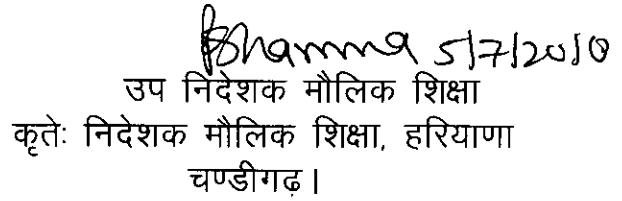 5/7/2010
उप निदेशक मौलिक शिक्षा
कृतेः निदेशक मौलिक शिक्षा, हरियाणा
चण्डीगढ़।